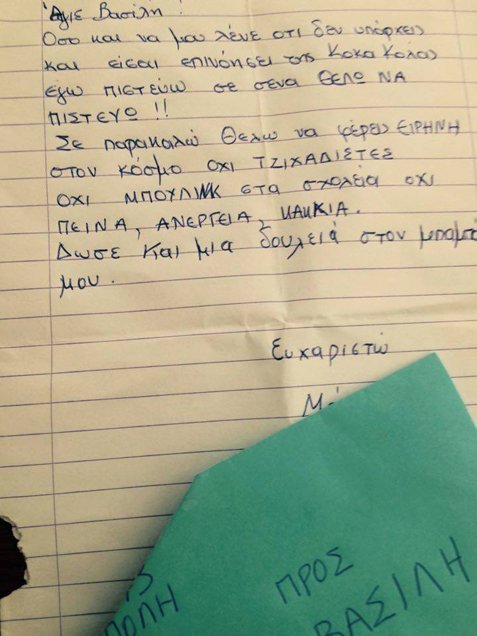 Άγιε Βασίλη!
Οσο και να μου λένε οτι δεν υπάρχεις
και είσαι επινόηση της Κοκα Κολας
εγω πιστεύω σε σενα ΘΕΛΩ ΝΑ
ΠΙΣΤΕΥΩ !!
Σε παρακαλώ θελω να φέρεις ΕΙΡΗΝΗ
στον κόσμο οχι ΤΖΙΧΑΔΙΣΤΕΣ
ΟΧΙ ΜΠΟΥΛΙΝΚ στα σχολεία οχι
ΠΕΙΝΑ, ΑΝΕΡΓΕΙΑ, ΚΑΚΚΙΑ.
Δωσε και μια δουλειά στον μπαμπά
μου.
Ευχαριστώ
ΠΡΟΣ
ΒΑΣΙΛΗ